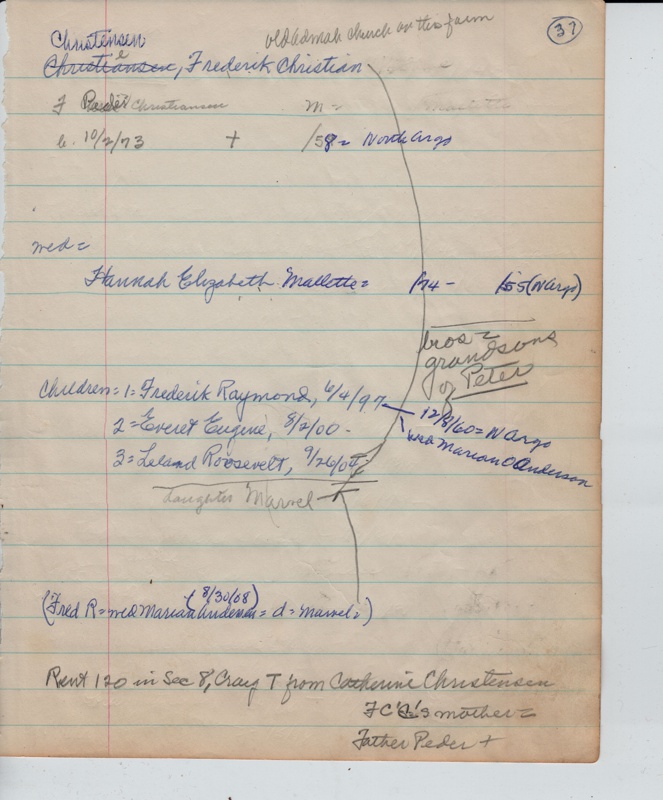 37
old Admah church on this farm
Christensen
Christiansen, Frederik Christian
F Peder Christiansen m =
b. 10/2/73 + /58 = North Argo
wed =
Hannah Elizabeth Mallette = /74 - /55 (N Argo)
bros =
grandsons
of Peter
Children = 1 = Frederik Raymond, 6/4/97 - 12/8/60 = N Argo
wed Marian O Anderson
2 = Everet Eugene, 8/2/00 -
3 = Leland Roosevelt, 9/26/04
daughter Marvel
(8/30/08)
(Fred R = wed Marian Anderson = d = Marvel = )
Rent 120 in Sec 8, Craig T from Catherine Christensen
FC C's mother =
Father Peder +